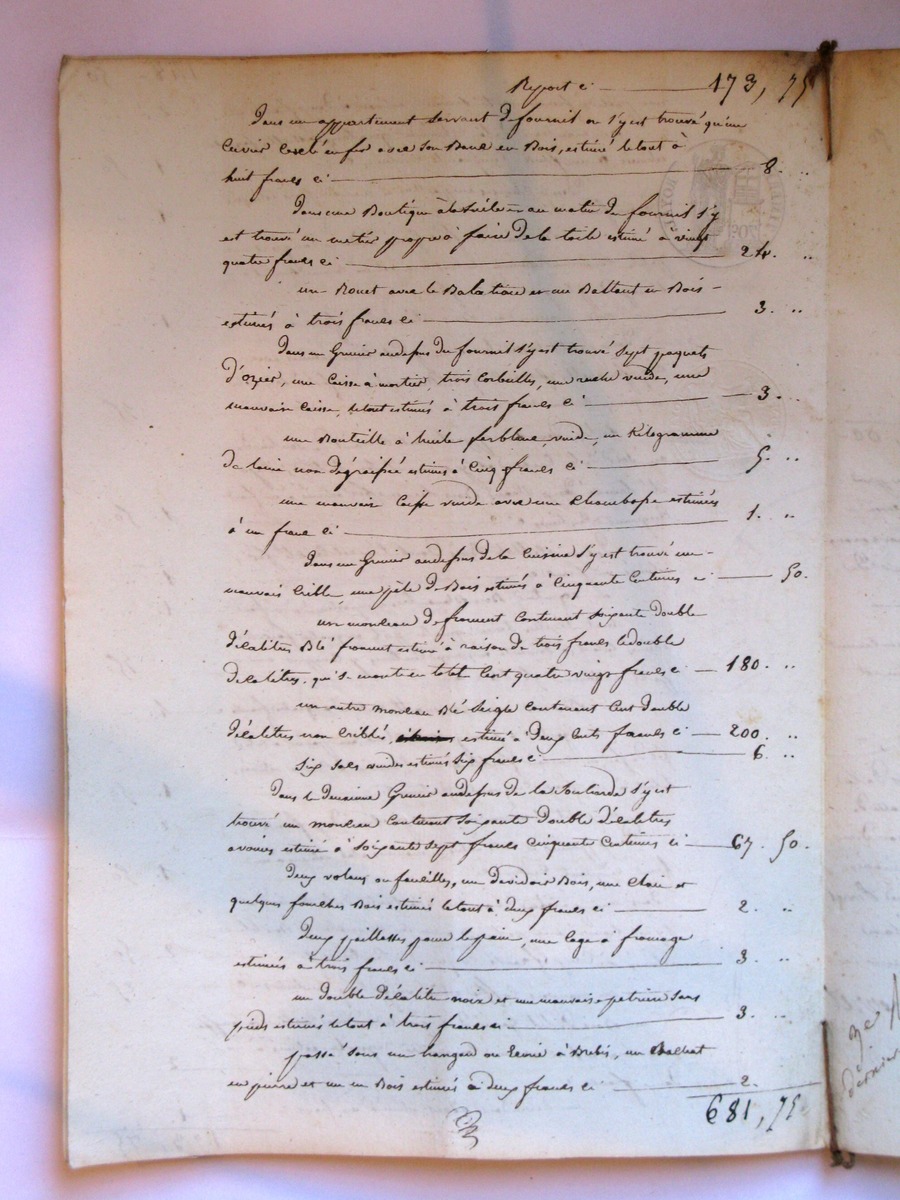 Report ci 173, 75
Dans un appartement servant de fournil où s'y est trouvé qu'un
Cuvier Cerclé en fer avec son Banc en Bois, estimé le tout à
huit francs ci 8. ..
Dans une Boutique à la suite et au matin du fournil s'y
est trouvé un métier propre à faire de la toile estimé à vingt
quatre francs ci 24. ..
un Rouet avec le et un Battant en Bois
estimés à trois francs ci 3. ..
Dans un Grenier au dessus du fournil s'y est trouvé sept paquets
d'ozier, une Caisse à mortier, trois Corbeilles, une ruche vuide, une
mauvaise Caisse, le tout estimés à trois francs ci 3. ..
une Bouteille à huile ferblanc vuide, un Kilogramme
de laine non dégraissée estimés à Cinq francs ci 5. ..
une mauvaise Caisse vuide avec une estimées
à un franc ci 1. ..
Dans un Grenier au dessus de la Cuisine s'y est trouvé un
mauvais Crible, une pèle de Bois estimés à Cinquante Centimes ci 50.
un monceau de froment Contenant soixante double
décalitres Blé froment estimé à raison de trois francs le double
décalitres, qui se monte en total Cent quatre vingt francs ci 180. ..
un autre monceau Blé seigle Contenant Cent double
décalitres non Criblés, estimé à deux Cents francs ci 200. ..
Six sacs vuides estimés six francs ci 6. ..
Dans le deuxième Grenier au dessus de la s'y est
trouvé un monceau Contenant soixante double décalitres
avoine estimé à soixante sept francs Cinquante Centimes ci 67. 50.
Deux volans ou faucilles, un devidoir Bois, une Claie et
quelques fourches Bois estimés le tout à deux francs ci 2. ..
Deux paillasses pour le pain, une Cage à fromage
estimées à trois francs ci 3. ..
un double décalitre noix et une mauvaise petrière sans
pieds estimés le tout à trois francs ci 3. ..
passé sous un hangard ou Ecurie à Brebis, un Bachat
en pierre et un en Bois estimés à deux francs ci 2.
681, 75